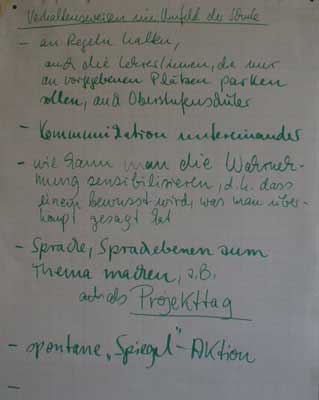 Verhaltensweisen im Umfeld der Schule
- an Regeln halten,
auch die Lehrer/innen, die nur
an vorgegebenen Plätzen parken
sollen, auch Oberstufenschüler
- Kommunikation untereinander
- wie kann man die Wahrneh-
mung sensibilisieren, d.h. dass
einem bewusst wird, was man über-
haupt gesagt hat
- Sprache, Sprachebenen zum
Thema machen, z.B.
auch als Projekttag
- spontane „Spiegel"-Aktion
-